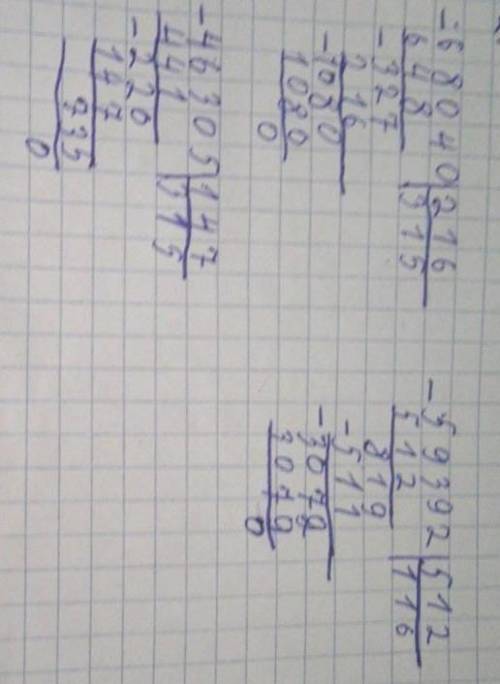 -68040|216
648|315
-327
216
-1080
1080
0
-59392|512
512|116
819
-511
-3072
3072
0
-46305|147
441|315
-220
147
735
0